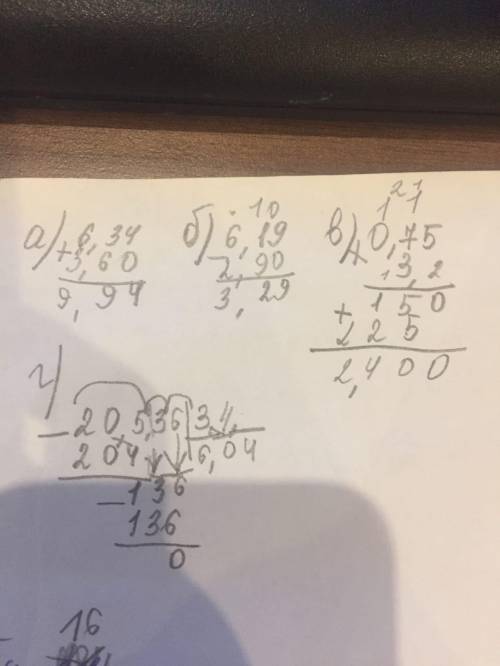 а) 6,34
+ 3,60
9,94
б) 10
6,19
- 2,90
3,29
в) 2 1
1 1
× 0,75
3,2
+ 150
225
2,400
г)
- 205,36 | 3,4
204 | 6,04
- 136
136
0
16